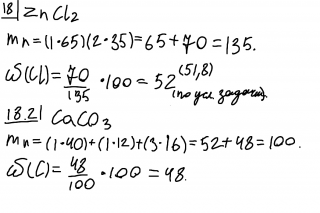 18 ZnCl₂
mп=(1·65)(2·35)=65+70=135.
ω(Cl)=70/135·100=52(51,8)
(по усл. задачи).
18.2) CaCO₃
mп=(1·40)+(1·12)+(3·16)=52+48=100.
ω(C)=48/100·100=48.